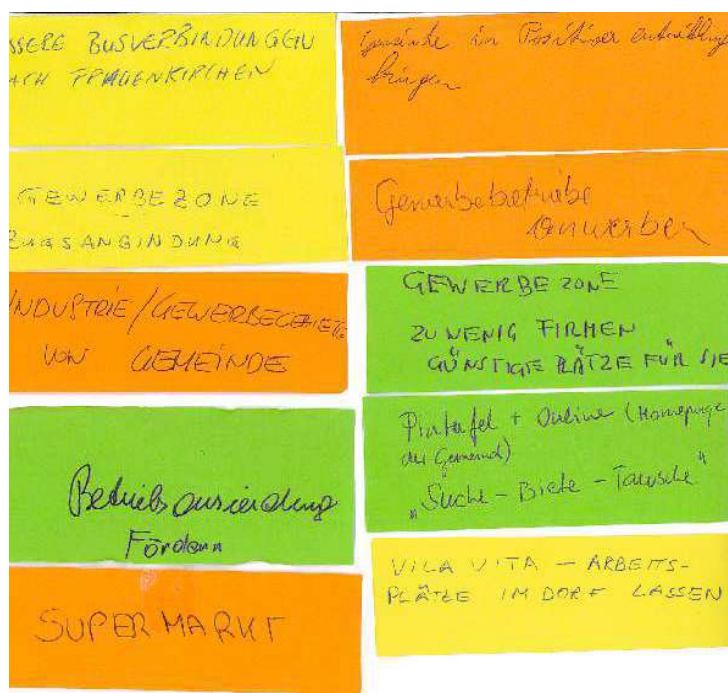 SSERE BUSVERBINDUNGEN
ACH FRAUENKIRCHEN
GEWERBEZONE
-
ZUGSANGINDUNG
INDUSTRIE/GEWERBEGEBIETE
VON GEMEINDE
Betriebsansiedlung
Fördern
SUPERMARKT
Gemeinde in Positiver entwicklung
bringen
Gewerbebetriebe
anwerben
GEWERBEZONE
ZU WENIG FIRMEN
GÜNSTIGE PLÄTZE FÜR SIE
Pintafel + Online (Homepage
der Gemeind)
„Suche - Biete - Tausche"
VILA VITA - ARBEITS-
PLÄTZE IM DORF LASSEN